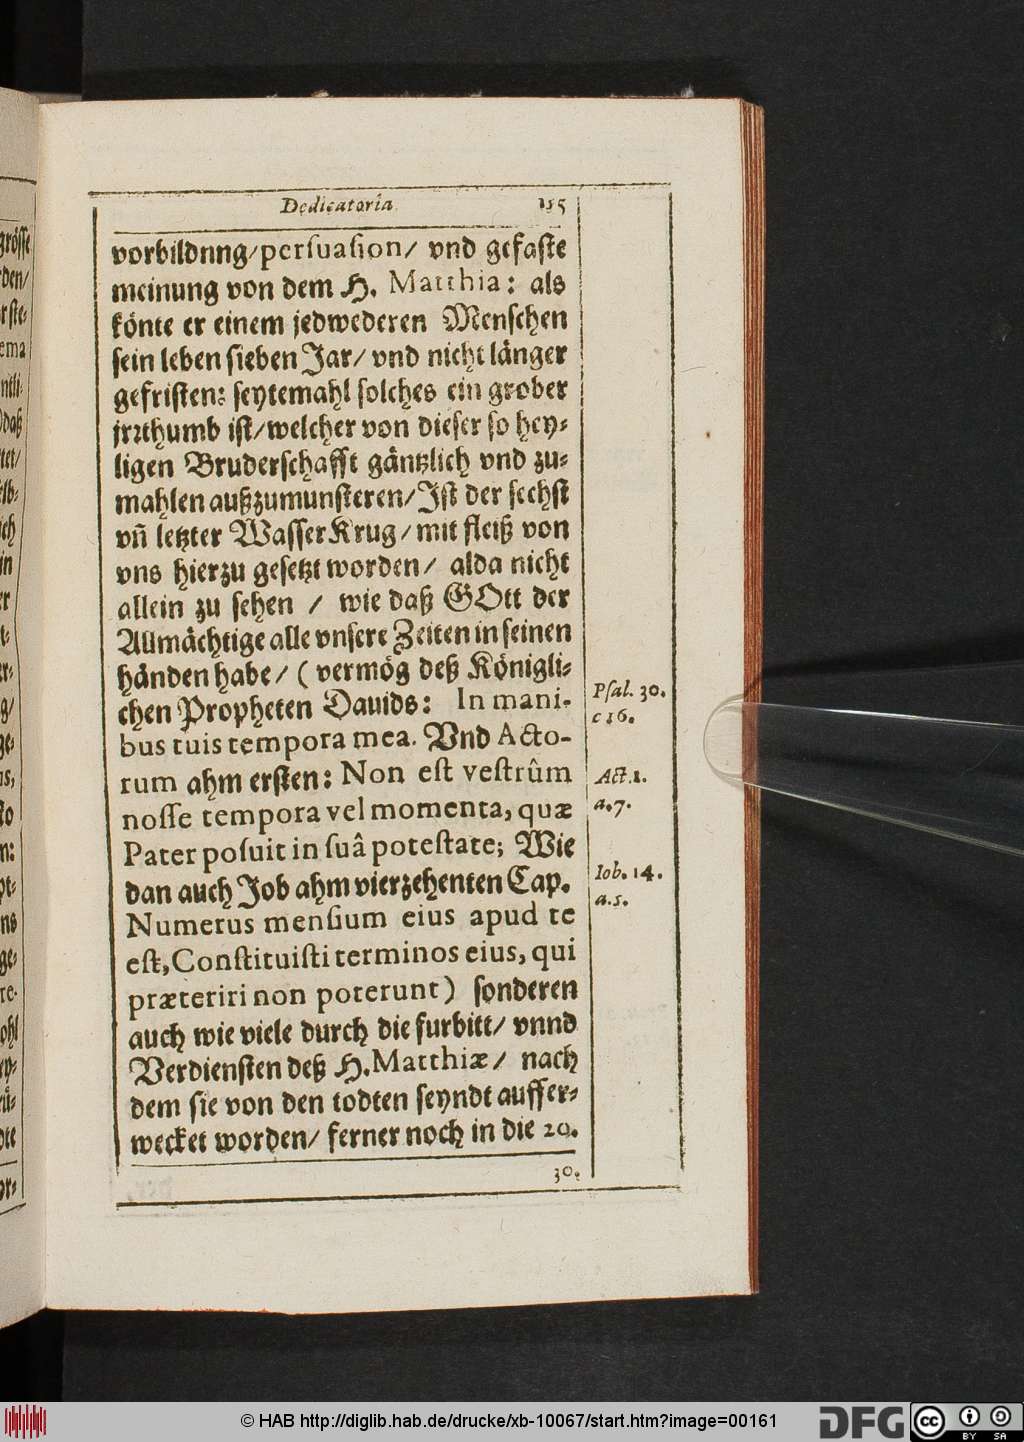 Dedicatoria 155
vorbildnng/persuasion/ vnd gefaste
meinung von dem H. Matthia: als
könte er einem jedwederen Menschen
sein leben sieben Jar/ vnd nicht länger
gefristen: seytemahl solches ein grober
jrrthumb ist/welcher von dieser so hey-
ligen Bruderschafft gäntzlich vnd zu-
mahlen außzumunsteren/Ist der sechst
vñ letzter WasserKrug/ mit fleiß von
vns hierzu gesetzt worden/ alda nicht
allein zu sehen / wie daß GOtt der
Allmächtige alle vnsere Zeiten in seinen
händen habe/ (vermög deß Königli-
chen Propheten Dauids: In mani-
Psal. 30.
c 16.
bus tuis tempora mea. Vnd Acto-
rum ahm ersten: Non est vestrûm
Act. 1.
a. 7.
nosse tempora vel momenta, quæ
Pater posuit in suâ potestate; Wie
dan auch Job ahm vierzehenten Cap.
Iob. 14.
a. 5.
Numerus mensium eius apud te
est, Constituisti terminos eius, qui
præteriri non poterunt) sonderen
auch wie viele durch die furbitt/ vnnd
Verdiensten deß H. Matthiæ/ nach
dem sie von den todten seyndt auffer-
wecket worden/ ferner noch in die 20.
30.
© HAB http://diglib.hab.de/drucke/xb-10067/start.htm?image=00161
DFG
cc BY SA